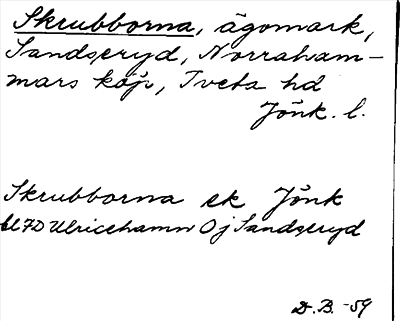 Skrubborna, ägomark,
Sandseryd, Norraham-
mars köp, Tveta hd
Jönk. l.
Skrubborna ek Jönk
bl 7D Ulricehamn Öj Sandseryd
D.B. -59